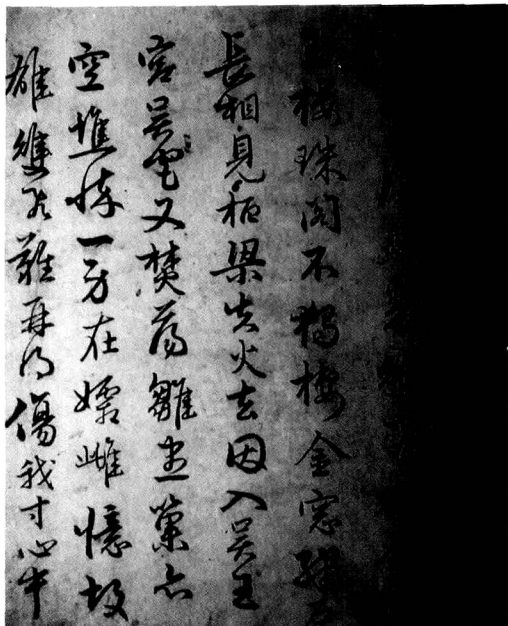 樓珠閣不獨棲金窓繡
長相見柏梁失火去因入吳王
宮吳宮又焚蕩雛盡巢亦
空憔悴一身在孀雌憶故
雄雙飛難再得傷我寸心中